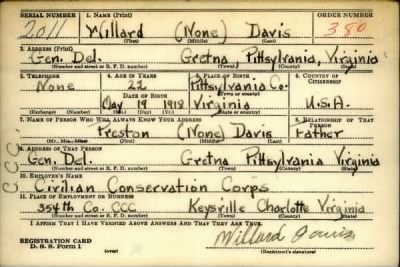 SERIAL NUMBER 1. NAME (Print) ORDER NUMBER
2011 Willard (None) Davis 380
(First) (Middle) (Last)
2. ADDRESS (Print)
Gen. Del. Gretna, Pittsylvania, Virginia
(Number and street or R. F. D. number) (Town) (County) (State)
3. TELEPHONE 4. AGE IN YEARS 5. PLACE OF BIRTH 6. COUNTRY OF CITIZENSHIP
None 22 Pittsylvania Co.
DATE OF BIRTH (Town or county)
May 19 1918 Virginia U.S.A.
(Exchange) (Number) (Mo.) (Day) (Yr.) (State or country)
7. NAME OF PERSON WHO WILL ALWAYS KNOW YOUR ADDRESS 8. RELATIONSHIP OF THAT PERSON
Preston (None) Davis Father
(Mr., Mrs., Miss) (First) (Middle) (Last)
9. ADDRESS OF THAT PERSON
Gen. Del. Gretna Pittsylvania Virginia
(Number and street or R. F. D. number) (Town) (County) (State)
10. EMPLOYER'S NAME
Civilian Conservation Corps
11. PLACE OF EMPLOYMENT OR BUSINESS
354th Co. CCC Keysville Charlotte Virginia
(Number and street or R. F. D. number) (Town) (County) (State)
I AFFIRM THAT I HAVE VERIFIED ABOVE ANSWERS AND THAT THEY ARE TRUE.
REGISTRATION CARD
D. S. S. Form 1 (over) Willard Davis
(Registrant's signature)
CCC